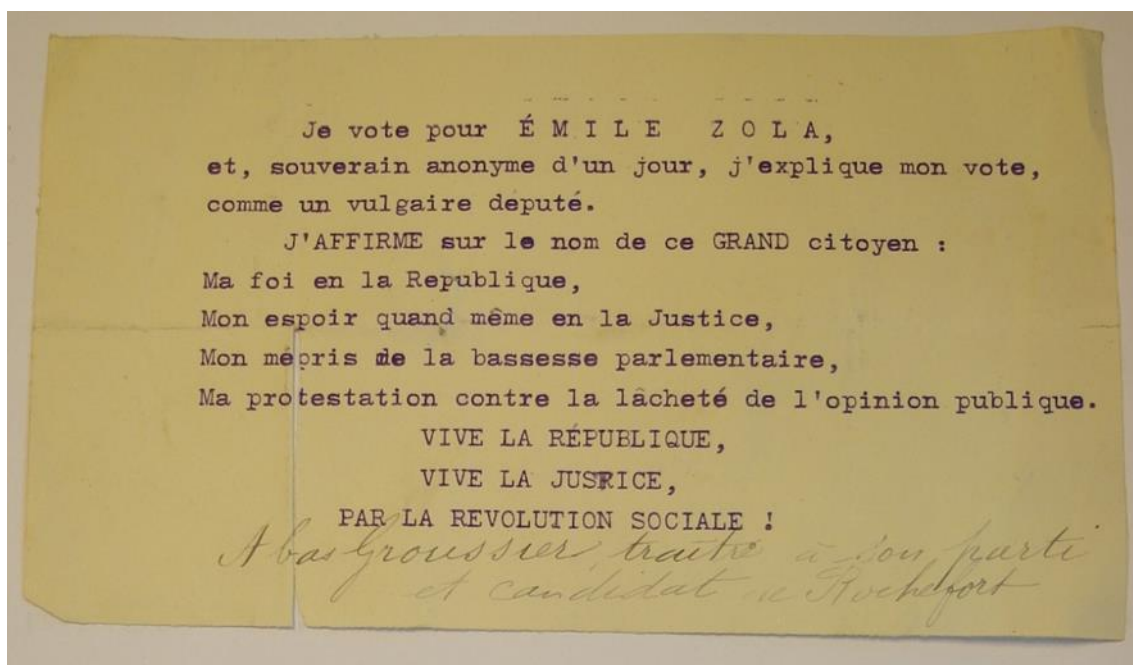 Je vote pour É M I L E Z O L A,
et, souverain anonyme d'un jour, j'explique mon vote,
comme un vulgaire deputé.
J'AFFIRME sur le nom de ce GRAND citoyen :
Ma foi en la Republique,
Mon espoir quand même en la Justice,
Mon mépris de la bassesse parlementaire,
Ma protestation contre la lâcheté de l'opinion publique.
VIVE LA RÉPUBLIQUE,
VIVE LA JUSRICE,
PAR LA REVOLUTION SOCIALE !
A bas Groussier, traitre à son parti
et candidat de Rochefort